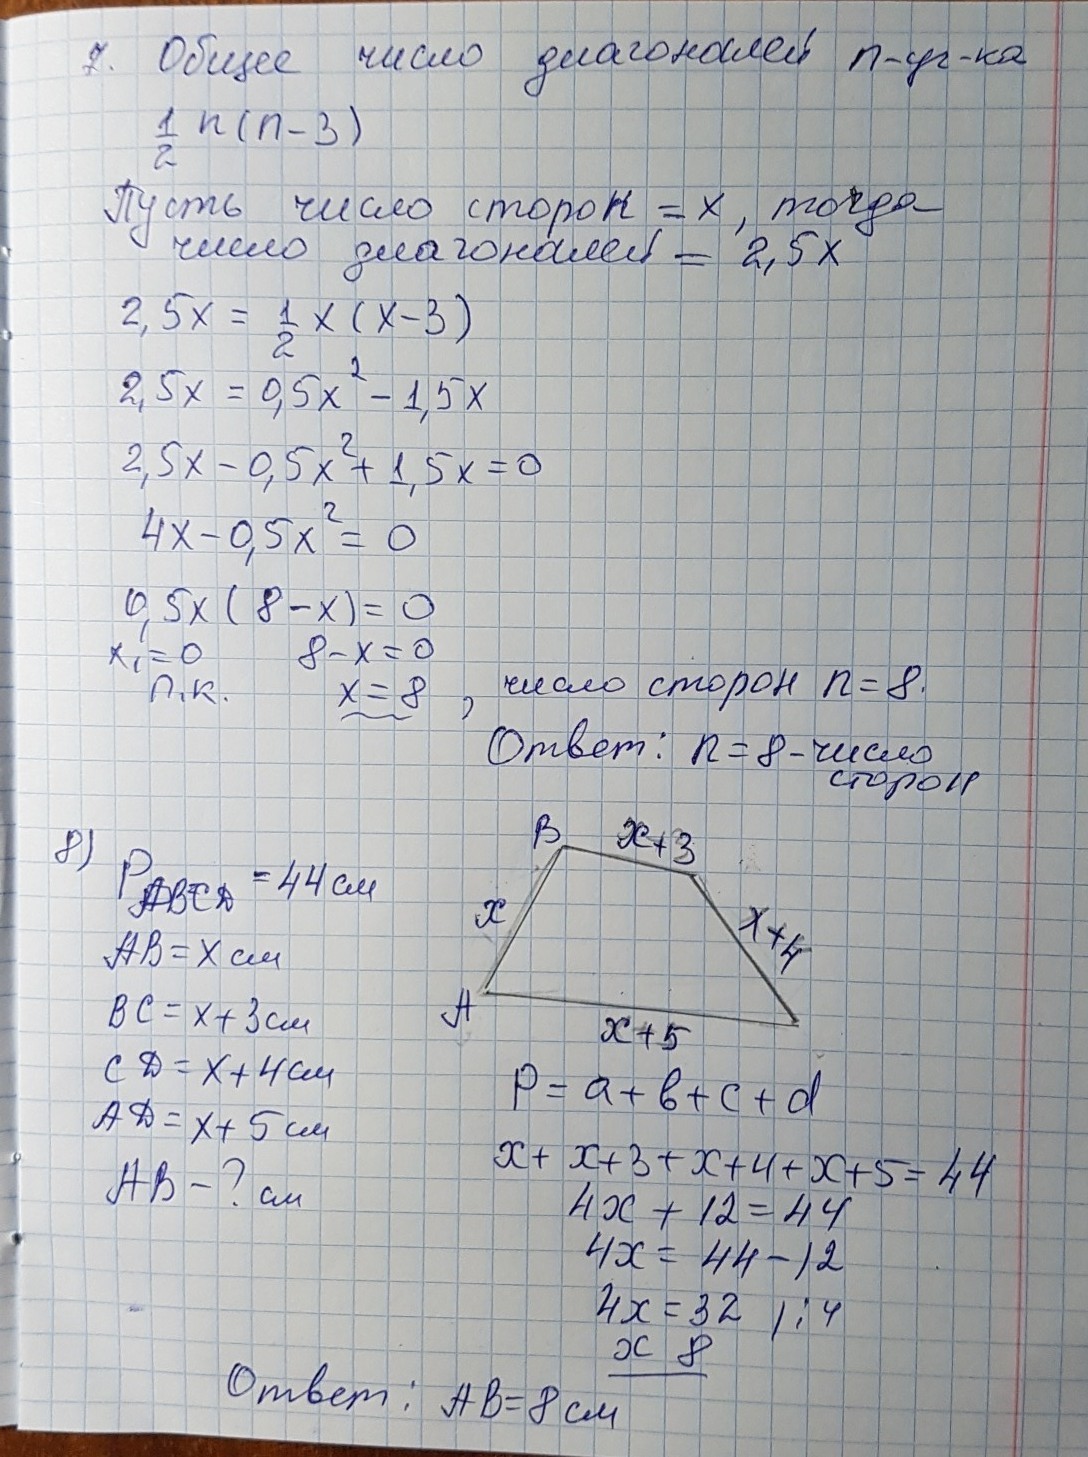 7. Общее число диагоналей n-уг-ка
1/2 n(n-3)
Пусть число сторон = x, тогда
число диагоналей = 2,5x
2,5x = 1/2 x(x-3)
2,5x = 0,5x² - 1,5x
2,5x - 0,5x² + 1,5x = 0
4x - 0,5x² = 0
0,5x(8-x) = 0
x₁ = 0 8-x = 0
п.к. x = 8, число сторон n = 8.
Ответ: n = 8 - число
сторон
8) P ABCD = 44 см
AB = x см
BC = x+3 см
CD = x+4 см
AD = x+5 см
AB - ? см
B x+3
x x+4
A x+5
P = a + b + c + d
x + x+3 + x+4 + x+5 = 44
4x + 12 = 44
4x = 44 - 12
4x = 32 /:4
x 8
Ответ: AB = 8 см